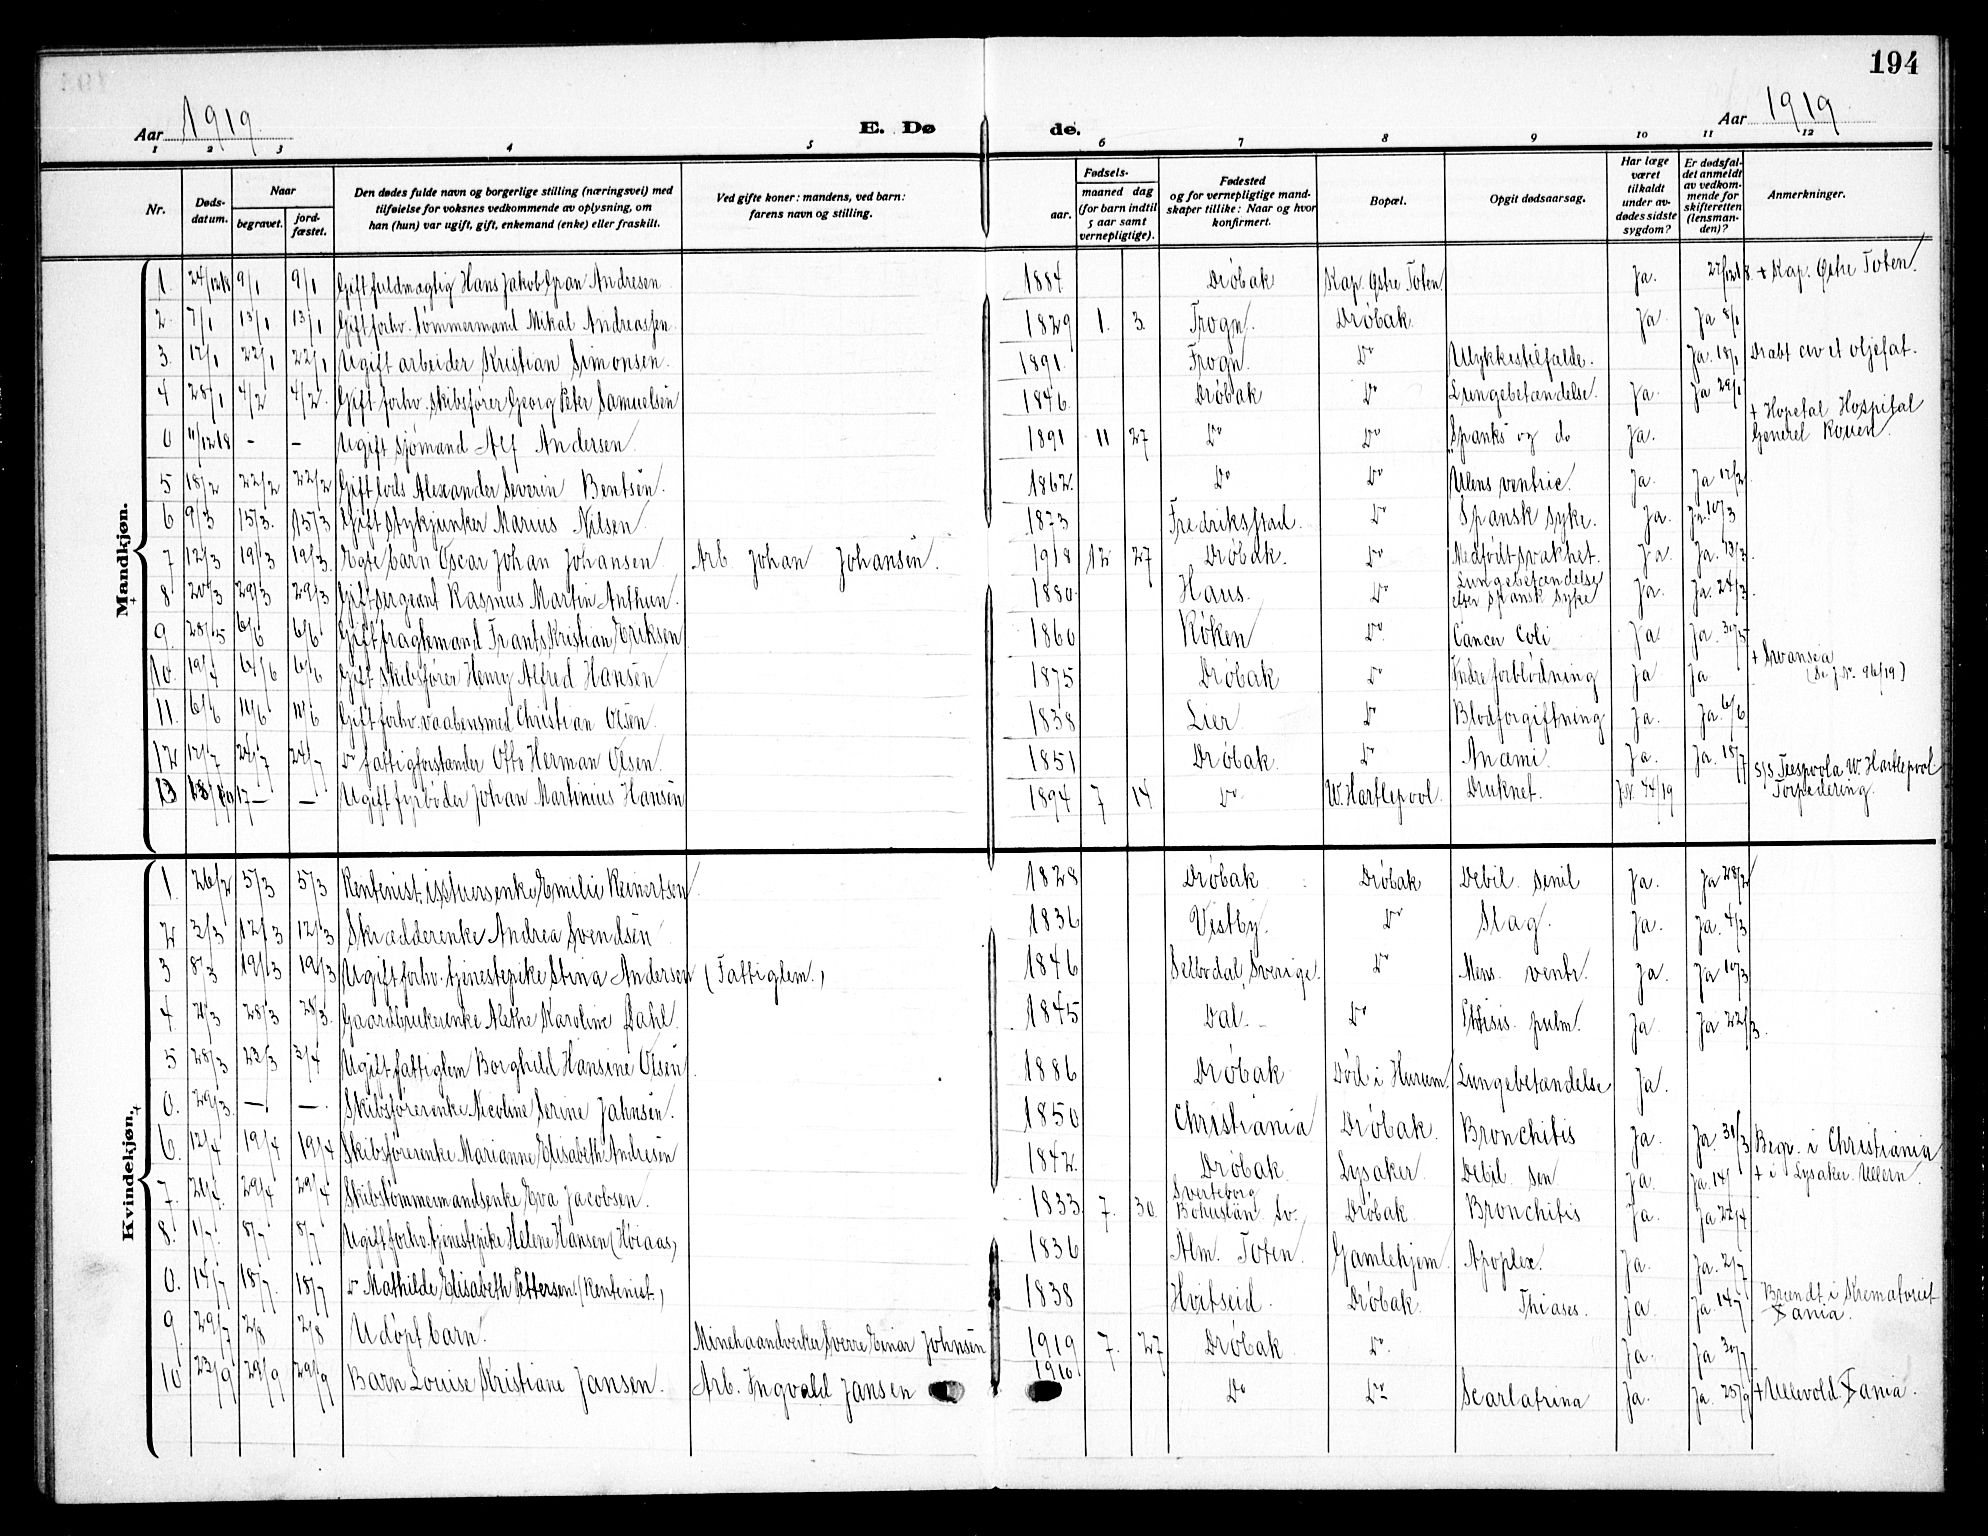 194
Aar 1919. E. Dø de. Aar 1919.
1 2 3 4 5 6 7 8 9 10 11 12
Nr. Døds-datum. Naar begravet. jord-fæstet. Den dødes fulde navn og borgerlige stilling (næringsvei) med tilføielse for voksnes vedkommende av oplysning, om han (hun) var ugift, gift, enkemand (enke) eller fraskilt. Ved gifte koner: mandens, ved barn: farens navn og stilling. Fødsels- aar. maaned dag (for barn indtil 5 aar samt vernepligtige). Fødested og for vernepligtige mandskaper tillike: Naar og hvor konfirmert. Bopæl. Opgit dødsaarsag. Har læge været tilkaldt under avdødes sidste sygdom? Er dødsfaldet anmeldt av vedkommende for skifteretten (lensmanden)? Anmerkninger.
Mandkjøn.
1. 24/12 18 9/1 9/1 Gift fuldmægtig Hans Jakob Gran Andresen 1884 Drøbak Kap. Østre Toten Ja. 27/12 18. + Kap. Østre Toten.
2. 7/1 13/1 13/1 Gift forhv. tømmermand Mikal Andreassen. 1829 1. 3. Frogn. Drøbak Ja Ja 8/1
3. 12/1 22/1 22/1 Ugift arbeider Kristian Simonsen. 1891. Frogn. Do Ulykkestilfælde. Ja. 18/1 Dræbt av et oljefat.
4 28/1 4/2 4/2. Gift forhv. skibsfører Georg Peter Samuelsen 1846. Drøbak Do Lungebetændelse. Ja. Ja 29/1
0 11/12 18 - - Ugift sjømand Alf Andersen. 1891 11 27 Do Do Spansk og do Ja. + Hopetal Hospital Generel Rouen.
5 18/2 22/2 22/2 Gift lods Alexander Severin Bentsen. 1862. Do Do Ulcus ventric. Ja. Ja
6 9/3 15/3. 15/3 Gift stykjunker Marius Nilsen. 1873 Fredriksstad. Do Spansk syke. Ja. Ja. 10/3
7 12/3 19/3 19/3. Egte barn Oscar Johan Johansen Arb. Johan Johansen. 1918 12 27 Drøbak. Do Medfødt svakhet. Ja. Ja. 13/3
8 20/3 29/3 29/3. Gift sergeant Rasmus Martin Anthun. 1880. Haus. Do Lungebetændelse efter spansk syke Ja. Ja. 24/3.
9. 28/5 6/6 6/6 Gift fragtemand Frants Kristian Eriksen 1860 Røken Do Cancer Coli Ja. Ja. 30/5
10. 19/4 6/6 Gift skibsfører Henry Alfred Hansen 1875 Drøbak Do Indre forblødning Ja Ja + Swansea (Se J.Nr. 96/19)
11. 6/6 Gift forhv. vaabensmed Christian Olsen. 1838 Lier Do Blodforgiftning Ja. Ja. 6/6
12 24/7 24/7 Do fattigforstander Otto Herman Olsen. 1851 Drøbak Do Anæmi. Ja. Ja. 18/7
13 17 - - Ugift fyrbøder Johan Martinius Hansen 1894 7 14 Do W. Hartlepool. Druknet. J.Nr. 74/19 S/S Teespoola W. Hartlepool. Torpedering.
Kvindekjøn.
1. 26/2 5/3 5/3 Rentenist. Emilie Reinertsen 1828 Drøbak Drøbak Debil. senil Ja. Ja 28/2
2 3/3 12/3 12/3 Skrædderenke Andrea Svendsen 1836 Vestby. Do Slag. Ja. Ja. 4/3
3 8/3 19/3 19/3 Ugift forhv. tjenestepike Stina Andersen (Fattiglem.) 1846 Selbodal, Sverige. Do ventr. Ja. Ja 10/3
4 28/3 28/3. Gaardbrukerenke Alethe Karoline Dahl. 1845 Dal. Do Phtisis pulm. Ja Ja 22/3.
5 28/3 3/4 Ugift fattiglem Borghild Hansine Olsen. 1886 Drøbak Død i Hurum. Lungebetændelse Ja.
0. 29/3. - - Skibsførerenke Nicoline Serine Jahnsen. 1850 Christiania Drøbak. Bronchitis Ja. Ja. 31/3 Begr. i Christiania
6. 12/4 19/4 19/4 Skibsførerenke Marianne Elisabeth Andresen 1842. Drøbak. Lysaker. Debil. sen Ja. Ja. 14/4 + i Lysaker Ullern.
7. 29/4 29/4 Skibstømmermandsenke Eva Jacobsen. 1833 7. 30. Sverteborg Bohuslän Sv. Drøbak. Bronchitis Ja. Ja 22/4
8. 1/7. 8/7 8/7 Ugift forhv. tjenestepike Helene Hansen (Hoiaas) 1836 Alm. Toten. Gamlehjem. Apoplex. Ja. Ja. 2/7
0. 14/7 18/7. 18/7 Do Mathilde Elisabeth Pettersen. (Rentenist.) 1838 Hvitseid. Drøbak. Ja. Ja. 14/7 Brændt i Krematoriet Xania.
9. 29/7 2/8 2/8 Udøpt barn. Minehaandverker Sverre Einar Johnsen 1919 7. 27 Drøbak Do Ja. Ja 30/7
10 23/9 29/9 29/9 Barn Louise Kristiane Jansen. Arb. Ingvald Jansen 1910. Do Do Scarlatina Ja. Ja. 25/9 + Ullevold. Xania.